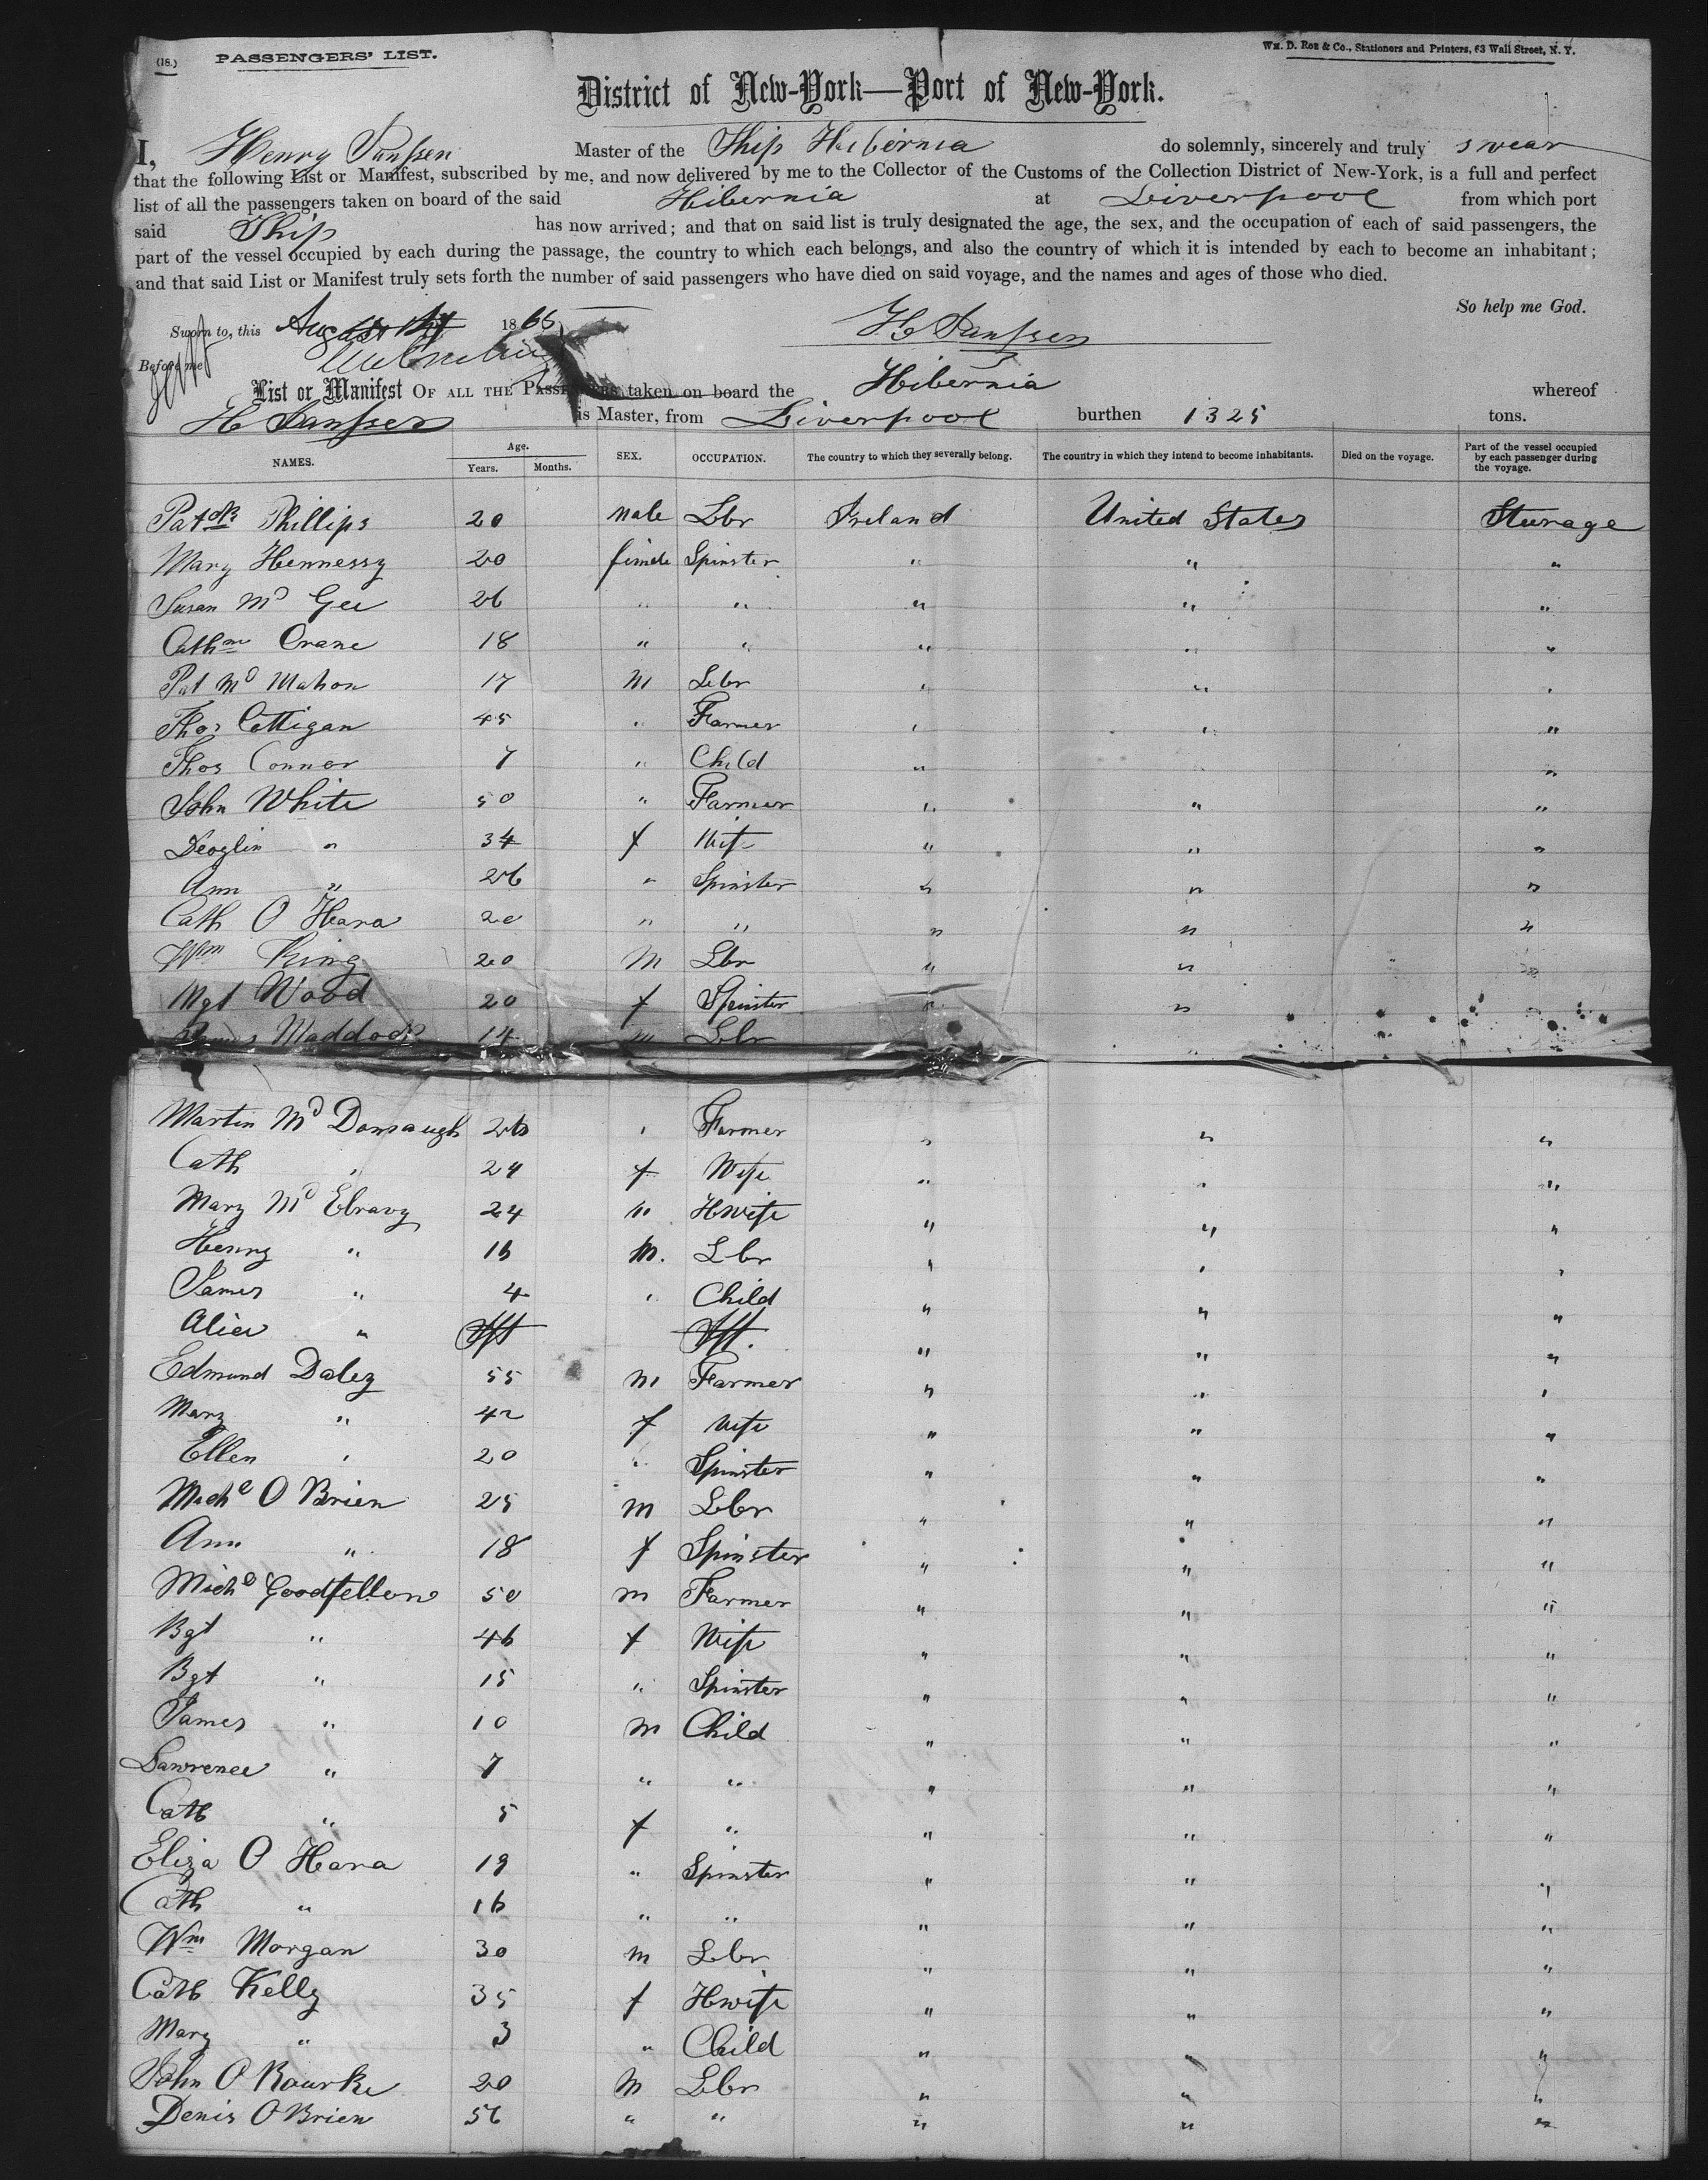 (18.) PASSENGERS' LIST. Wm. D. Roe & Co., Stationers and Printers, 63 Wall Street, N. Y.
District of New-York—Port of New-York.
I, Henry Janssen Master of the Ship Hibernia do solemnly, sincerely and truly swear
that the following List or Manifest, subscribed by me, and now delivered by me to the Collector of the Customs of the Collection District of New-York, is a full and perfect
list of all the passengers taken on board of the said Hibernia at Liverpool from which port
said Ship has now arrived; and that on said list is truly designated the age, the sex, and the occupation of each of said passengers, the
part of the vessel occupied by each during the passage, the country to which each belongs, and also the country of which it is intended by each to become an inhabitant;
and that said List or Manifest truly sets forth the number of said passengers who have died on said voyage, and the names and ages of those who died.
So help me God.
Sworn to, this August 1866
H Janssen
Before me
List or Manifest OF ALL THE PASSENGERS taken on board the Hibernia whereof
H Janssen is Master, from Liverpool burthen 1325 tons.
NAMES. Age. Years. Months. SEX. OCCUPATION. The country to which they severally belong. The country in which they intend to become inhabitants. Died on the voyage. Part of the vessel occupied by each passenger during the voyage.
Patck Phillips 20 male Lbr Ireland United States Steerage
Mary Hennessy 20 female Spinster " " "
Susan Mc Gee 26 " " " " "
Cathne Crane 18 " " " " "
Pat Mc Mahon 17 M Lbr " " "
Thos Cottigan 45 " Farmer " " "
Thos Connor 7 " Child " "
John White 50 " Farmer " " "
" 34 f Wife " " "
Ann " 26 " Spinster " " "
Cath O Hara 20 " " " " "
Wm King 20 M Lbr " " "
Mgt Wood 20 f Spinster " "
James Maddock 14 m Lbr "
Martin Mc Donaugh 26 " Farmer " " "
Cath " 24 f Wife " " "
Mary Mc Elravy 24 " Hwife " " "
Henry " 16 M. Lbr " " "
James " 4 " Child " " "
Alice " Inft Inft. " " "
Edmund Daley 55 m Farmer " " "
Mary " 42 f Wife " " "
Ellen " 20 " Spinster " " "
Michl O Brien 25 M Lbr " " "
Ann " 18 f Spinster " " "
Michl Goodfellow 50 m Farmer " " "
Bgt " 46 f Wife " " "
Bgt " 15 " Spinster " " "
James " 10 M Child " " "
Lawrence " 7 " " " " "
Cath " 5 f " " " "
Eliza O Hara 19 " Spinster " " "
Cath " 16 " " " " "
Wm Morgan 30 m Lbr " " "
Cath Kelly 35 f Hwife " " "
Mary " 3 " Child " " "
John O Rourke 20 M Lbr " " "
Denis O Brien 56 " " " " "